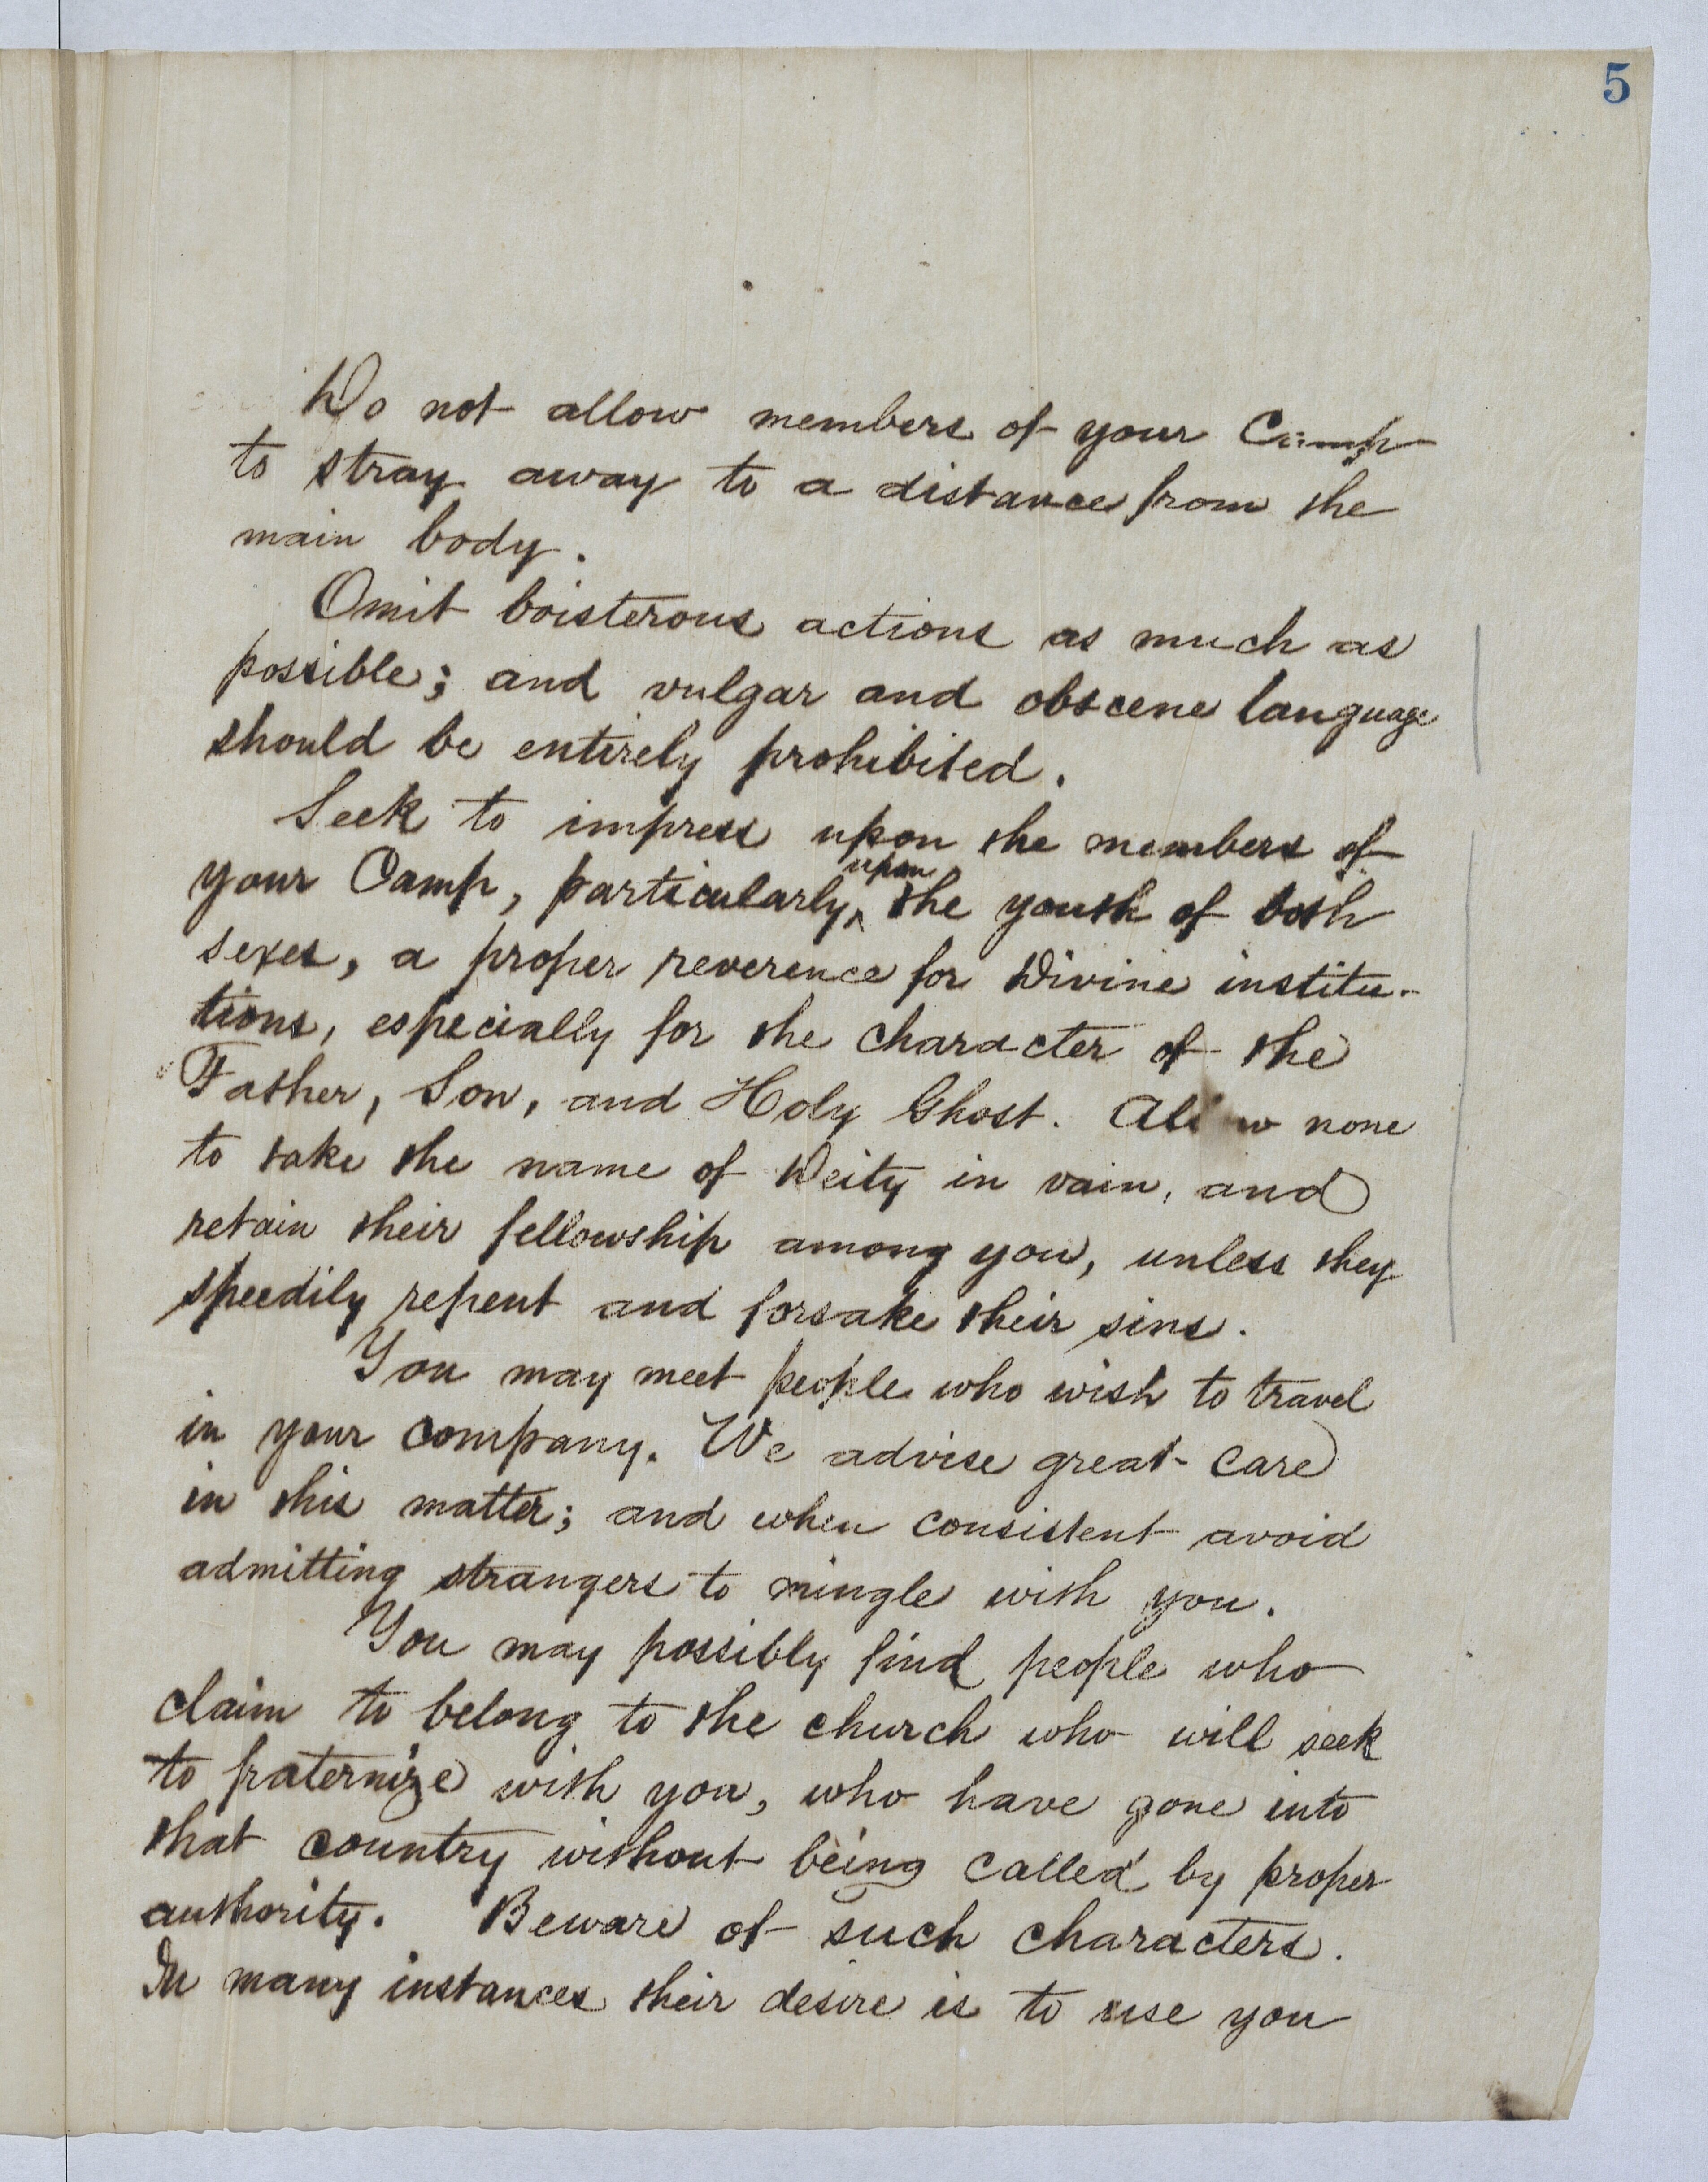 5
Do not allow members of your Camp
to stray away to a distance from the
main body.
Omit boisterous actions as much as
possible; and vulgar and obscene language
should be entirely prohibited.
Seek to impress upon the members of
upon
your Camp, particularly ‸ the youth of both
sexes, a proper reverence for Divine institu-
tions, especially for the character of the
Father, Son, and Holy Ghost. Allow none
to take the name of Deity in vain, and
retain their fellowship among you, unless they
speedily repent and forsake their sins.
You may meet people who wish to travel
in your company. We advise great care
in this matter; and when consistent avoid
admitting strangers to mingle with you.
You may possibly find people who
claim to belong to the church who will seek
to fraternize with you, who have gone into
that country without being called by proper
authority. Beware of such characters.
In many instances their desire is to use you